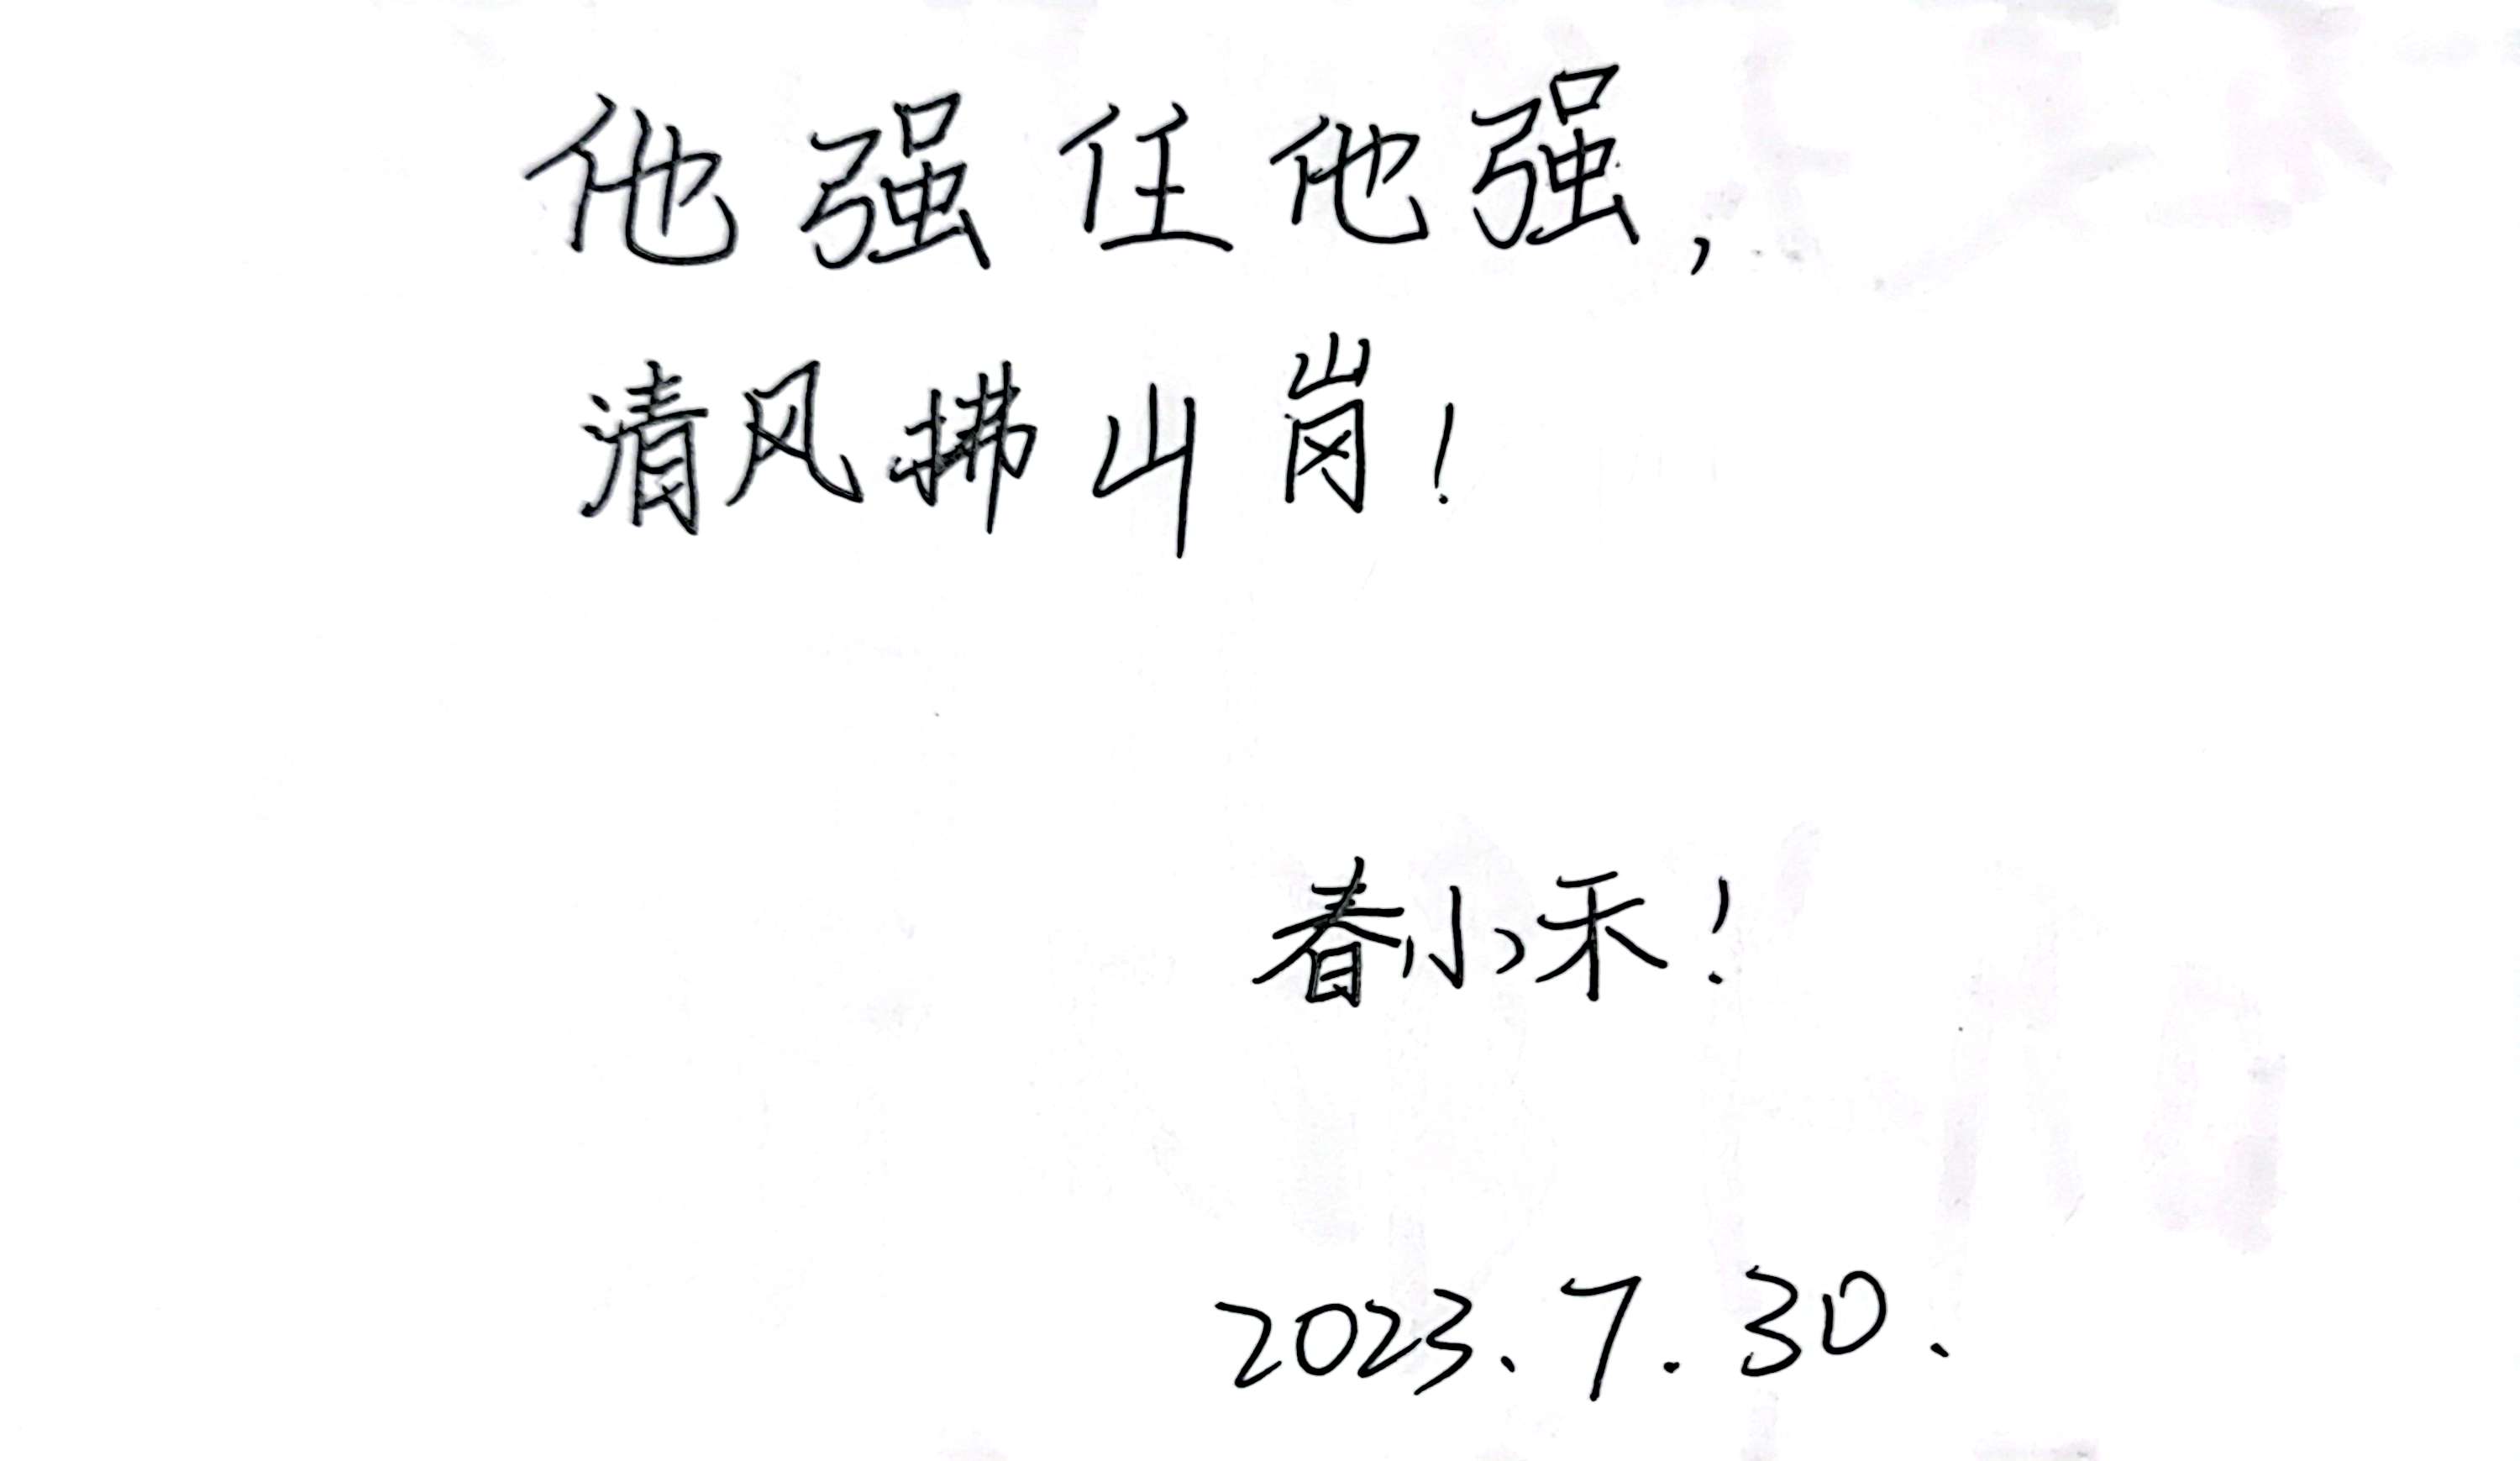 他强任他强,
清风拂山岗!
春小禾!
2023.7.30.